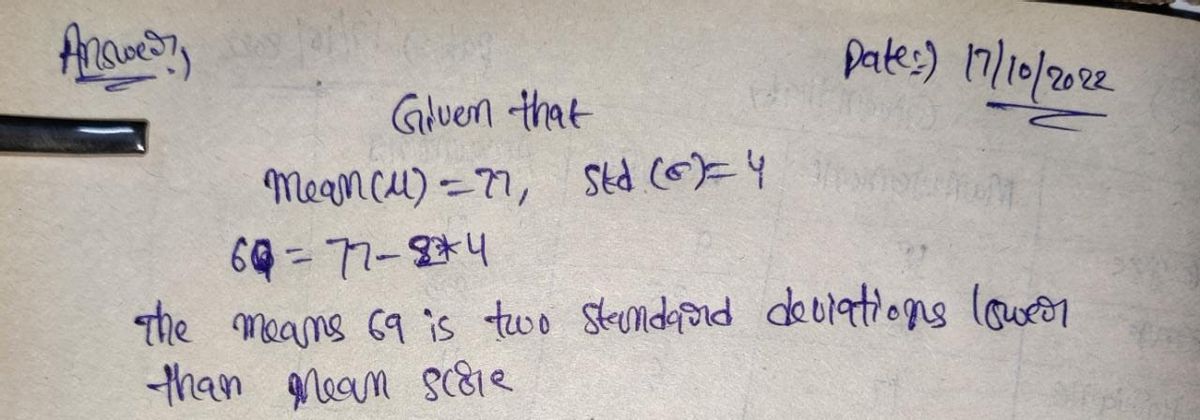 Answer:,
Date:) 17/10/2022
Given that
Mean(μ) = 77, Std (σ) = 4
69 = 77 - 2*4
The means 69 is two Standard deviations lower
than mean score